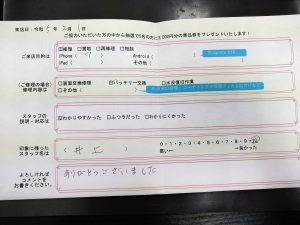 来店日：令和 5 年 2 月 1 日
ご協力いただいた方の中から抽選で5名の方に1000円分の商品券をプレゼントいたします！
ご来店目的は
修理 買取 再修理 相談
iPhone （ ） Android（
iPad （ ） その他（
（ご修理の場合）
修理内容は
画面交換修理 バッテリー交換 水没復旧作業
その他（
スタッフの
説明・対応は
わかりやすかった ふつうだった わかりにくかった
印象に残った
スタッフ名は
（ 井上 ）
0・1・2・3・4・5・6・7・8・9・10
悪い← →良かった
よろしければ
コメントを
お書きください。
ありがとうございました